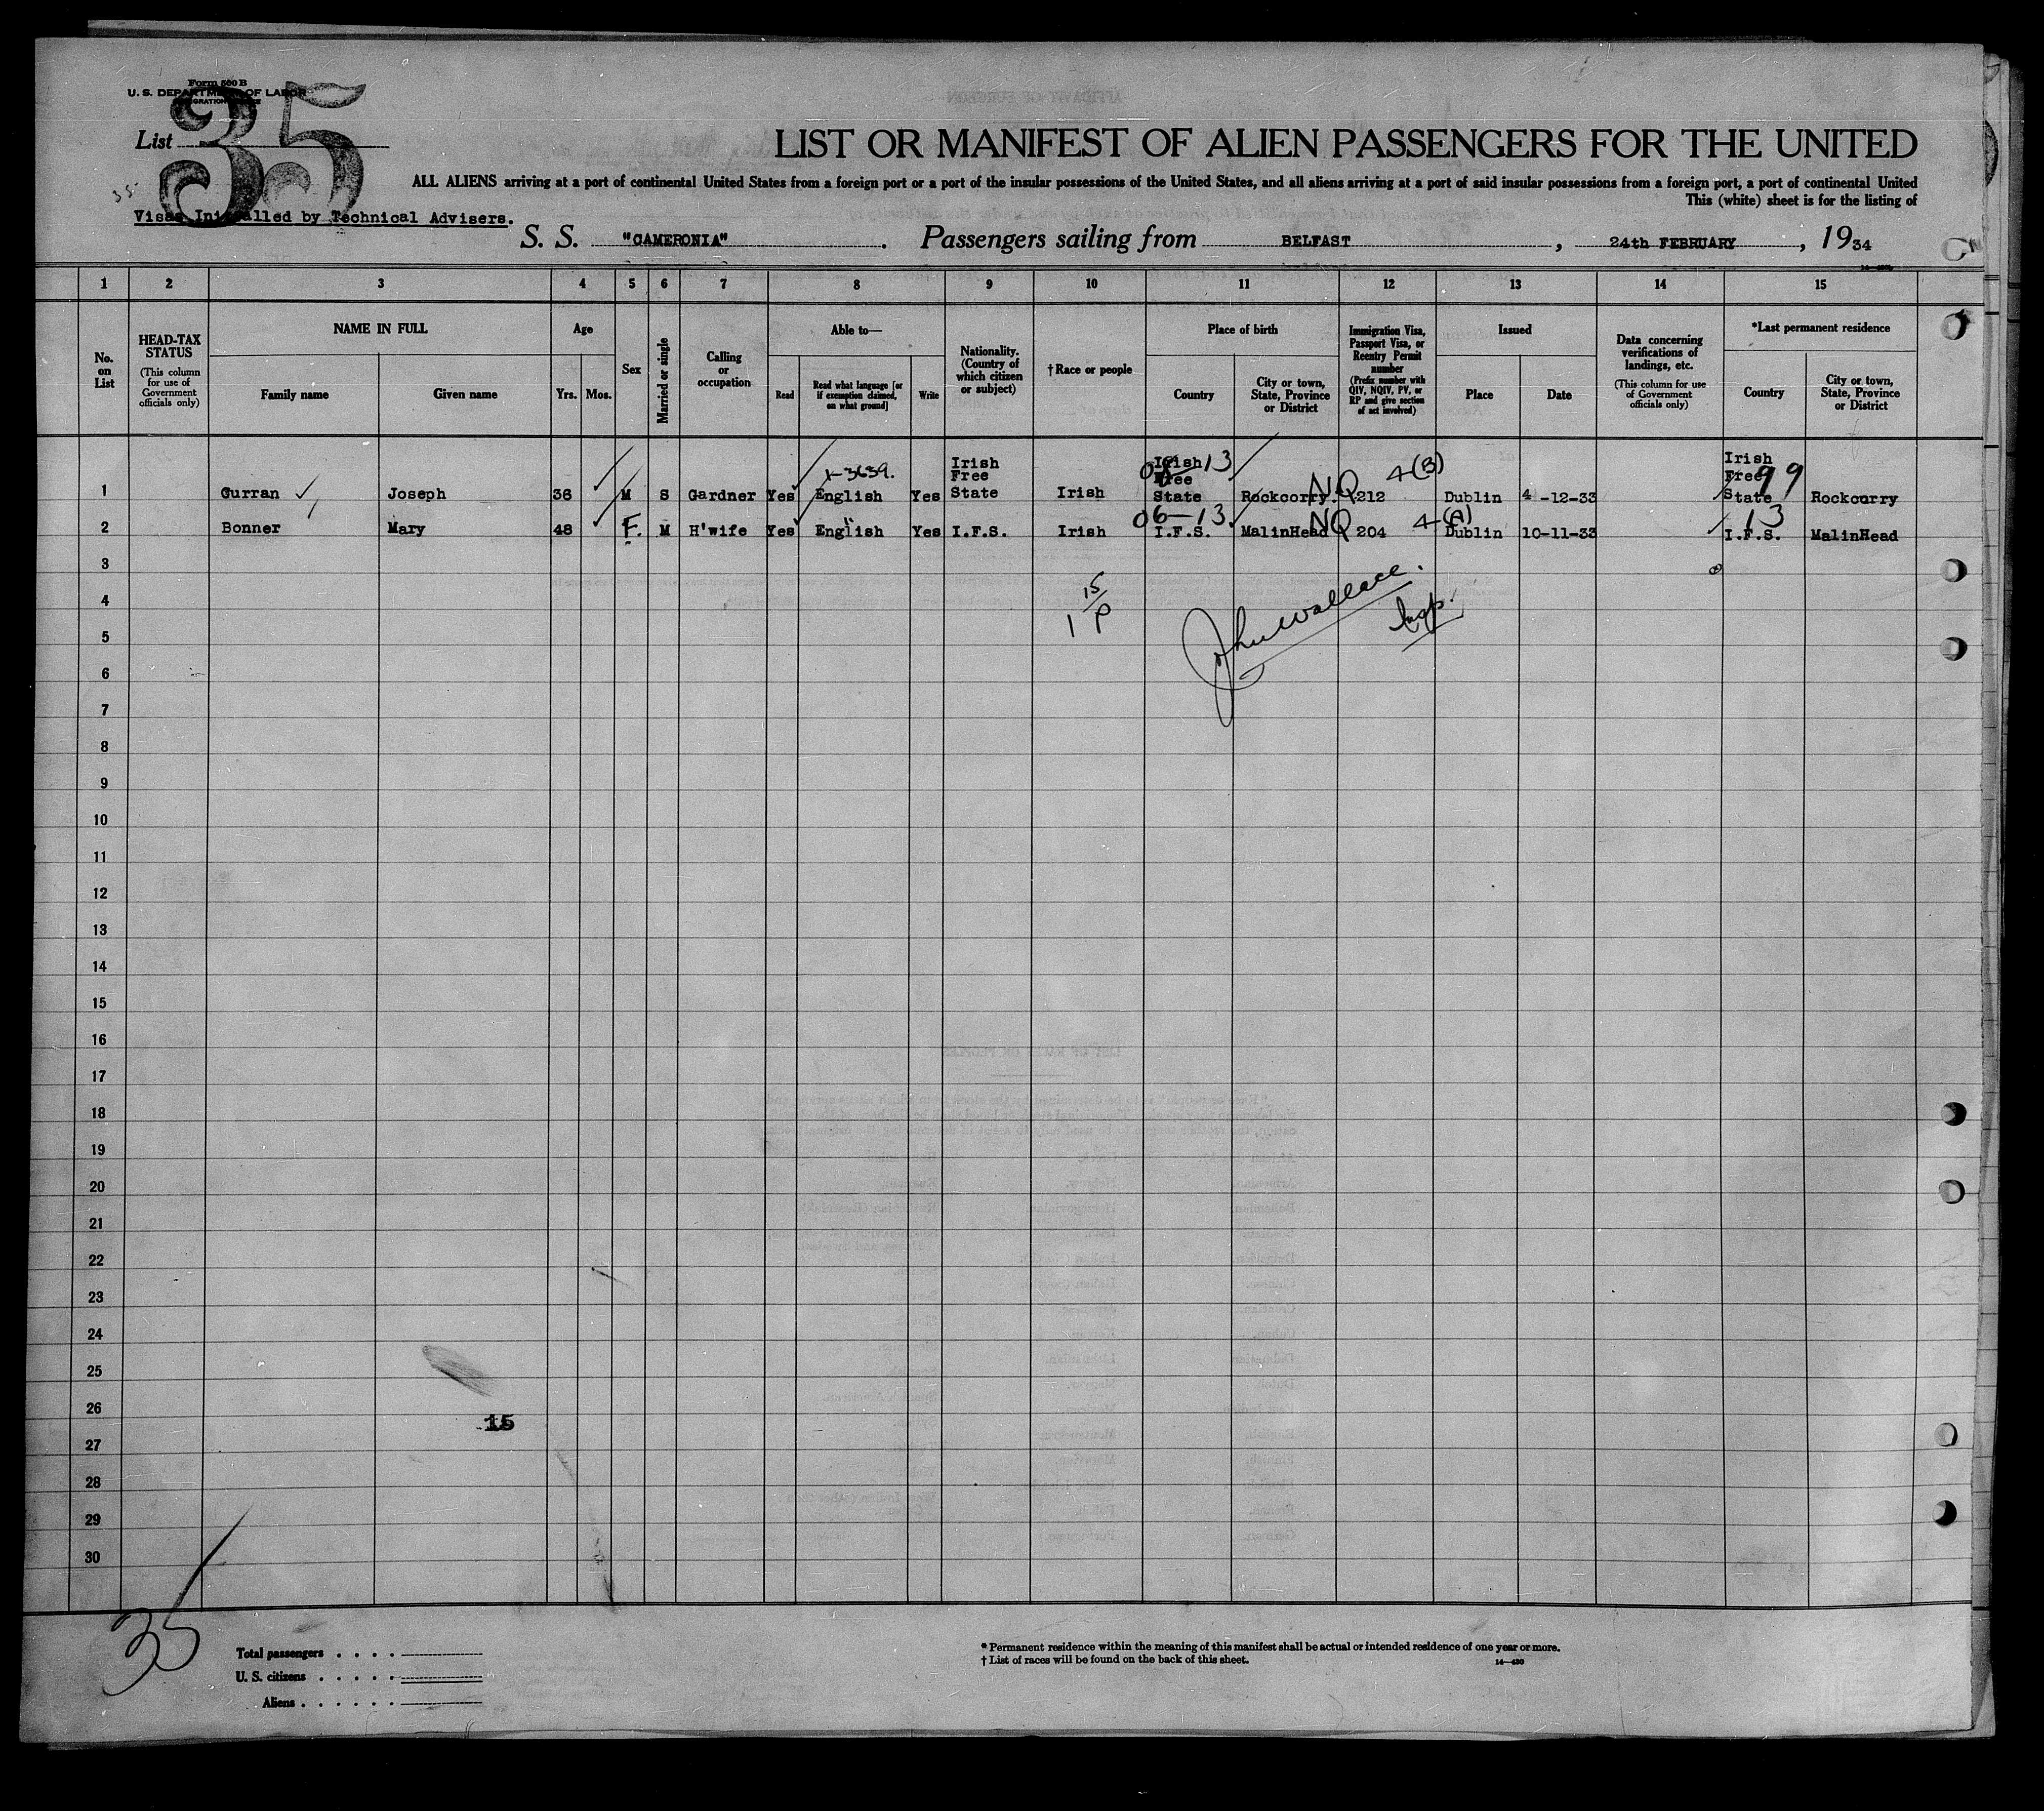 Form 500 B
U. S. DEPARTMENT OF LABOR
IMMIGRATION SERVICE
List 35
35
Visas Initialled by Technical Advisers.
LIST OR MANIFEST OF ALIEN PASSENGERS FOR THE UNITED
ALL ALIENS arriving at a port of continental United States from a foreign port or a port of the insular possessions of the United States, and all aliens arriving at a port of said insular possessions from a foreign port, a port of continental United
This (white) sheet is for the listing of
S. S. "CAMERONIA". Passengers sailing from BELFAST, 24th FEBRUARY, 1934
1 2 3 4 5 6 7 8 9 10 11 12 13 14 15
No. on List
HEAD-TAX STATUS (This column for use of Government officials only)
NAME IN FULL
Family name Given name
Age
Yrs. Mos.
Sex
Married or single
Calling or occupation
Able to—
Read Read what language [or if exemption claimed, on what ground] Write
Nationality. (Country of which citizen or subject)
†Race or people
Place of birth
Country City or town, State, Province or District
Immigration Visa, Passport Visa, or Reentry Permit number (Prefix number with QIV, NQIV, PV, or RP and give section of act involved)
Issued
Place Date
Data concerning verifications of landings, etc. (This column for use of Government officials only)
*Last permanent residence
Country City or town, State, Province or District
1 Curran Joseph 36 M S Gardner Yes 1-3639. English Yes Irish Free State Irish Irish Free State 13 Rockcorry NQ 212 4(B) Dublin 4 -12-33 Irish Free State 99 Rockcorry
2 Bonner Mary 48 F. M H'wife Yes English Yes I.F.S. Irish 06-13 I.F.S. MalinHead NQ 204 4(A) Dublin 10-11-33 13 I.F.S. MalinHead
3
4 15
5 1 P John Wallace. Insp.
6
7
8
9
10
11
12
13
14
15
16
17
18
19
20
21
22
23
24
25
26 15
27
28
29
30
35
Total passengers . . . .
U. S. citizens . . . . .
Aliens . . . . . .
* Permanent residence within the meaning of this manifest shall be actual or intended residence of one year or more.
† List of races will be found on the back of this sheet. 14—430